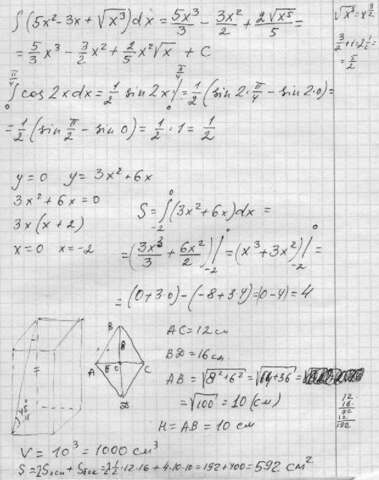 ∫(5x² - 3x + √x³)dx = 5x³/3 - 3x²/2 + 2√x⁵/5 =
= 5/3 x³ - 3/2 x² + 2/5 x²√x + C
√x³ = x^(3/2)
3/2 + 1 = 2 1/2 =
= 5/2
∫₀^(π/4) cos 2x dx = 1/2 sin 2x |₀^(π/4) = 1/2 (sin 2·π/4 - sin 2·0) =
= 1/2 (sin π/2 - sin 0) = 1/2 · 1 = 1/2
y = 0 y = 3x² + 6x
3x² + 6x = 0
3x(x + 2)
x = 0 x = -2
S = ∫₋₂⁰ (3x² + 6x)dx =
= (3x³/3 + 6x²/2)|₋₂⁰ = (x³ + 3x²)|₋₂⁰ =
= (0 + 3·0) - (-8 + 3·4) = |0 - 4| = 4
45°
B
8
A 6 O C
D
AC = 12 см
BD = 16 см
AB = √8² + 6² = √64 + 36 =
= √100 = 10 (см)
H = AB = 10 см
12
16
72
12
192
V = 10³ = 1000 см³
S = 2Sосн + Sбок = 2·1/2·12·16 + 4·10·10 = 192 + 400 = 592 см²